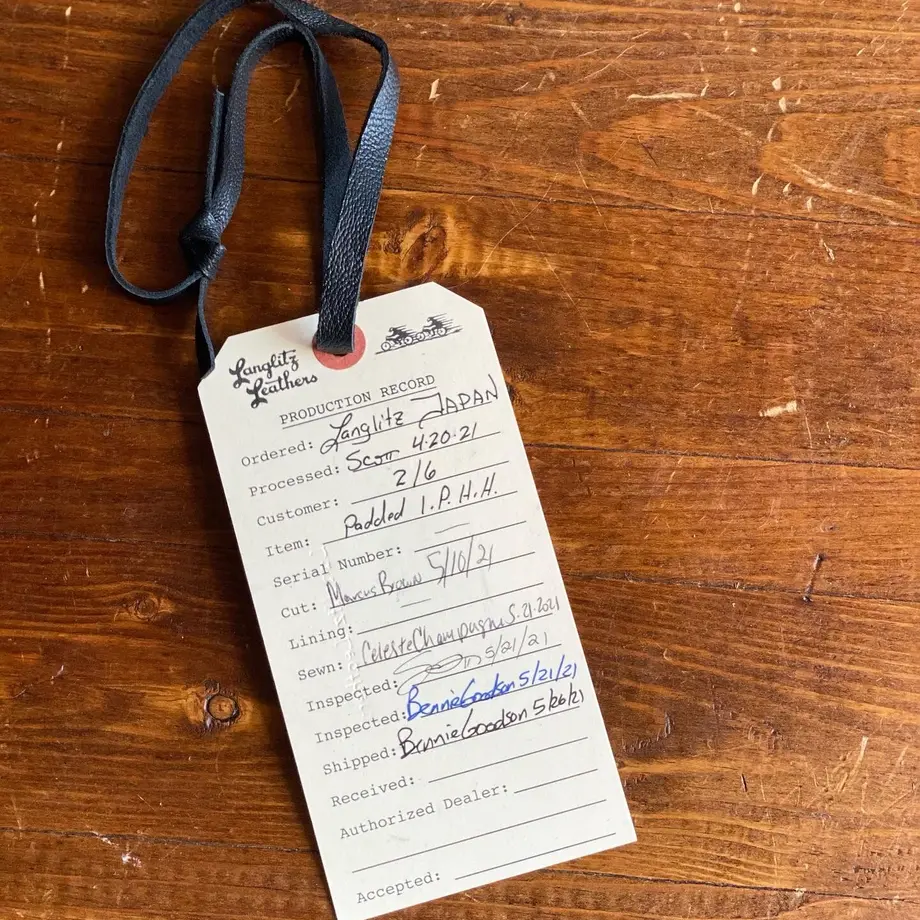 Langlitz
Leathers
PRODUCTION RECORD
Ordered: Langlitz JAPAN
Processed: Scott 4·20·21
Customer: 2/6
Item: Padded I.P.H.H.
Serial Number: —
Cut: Marcus Brown 5/10/21
Lining: —
Sewn: Celeste Champagne 5.21.2021
Inspected: 5/21/21
Inspected: Bennie Goodson 5/21/21
Shipped: Bennie Goodson 5/26/21
Received:
Authorized Dealer:
Accepted: